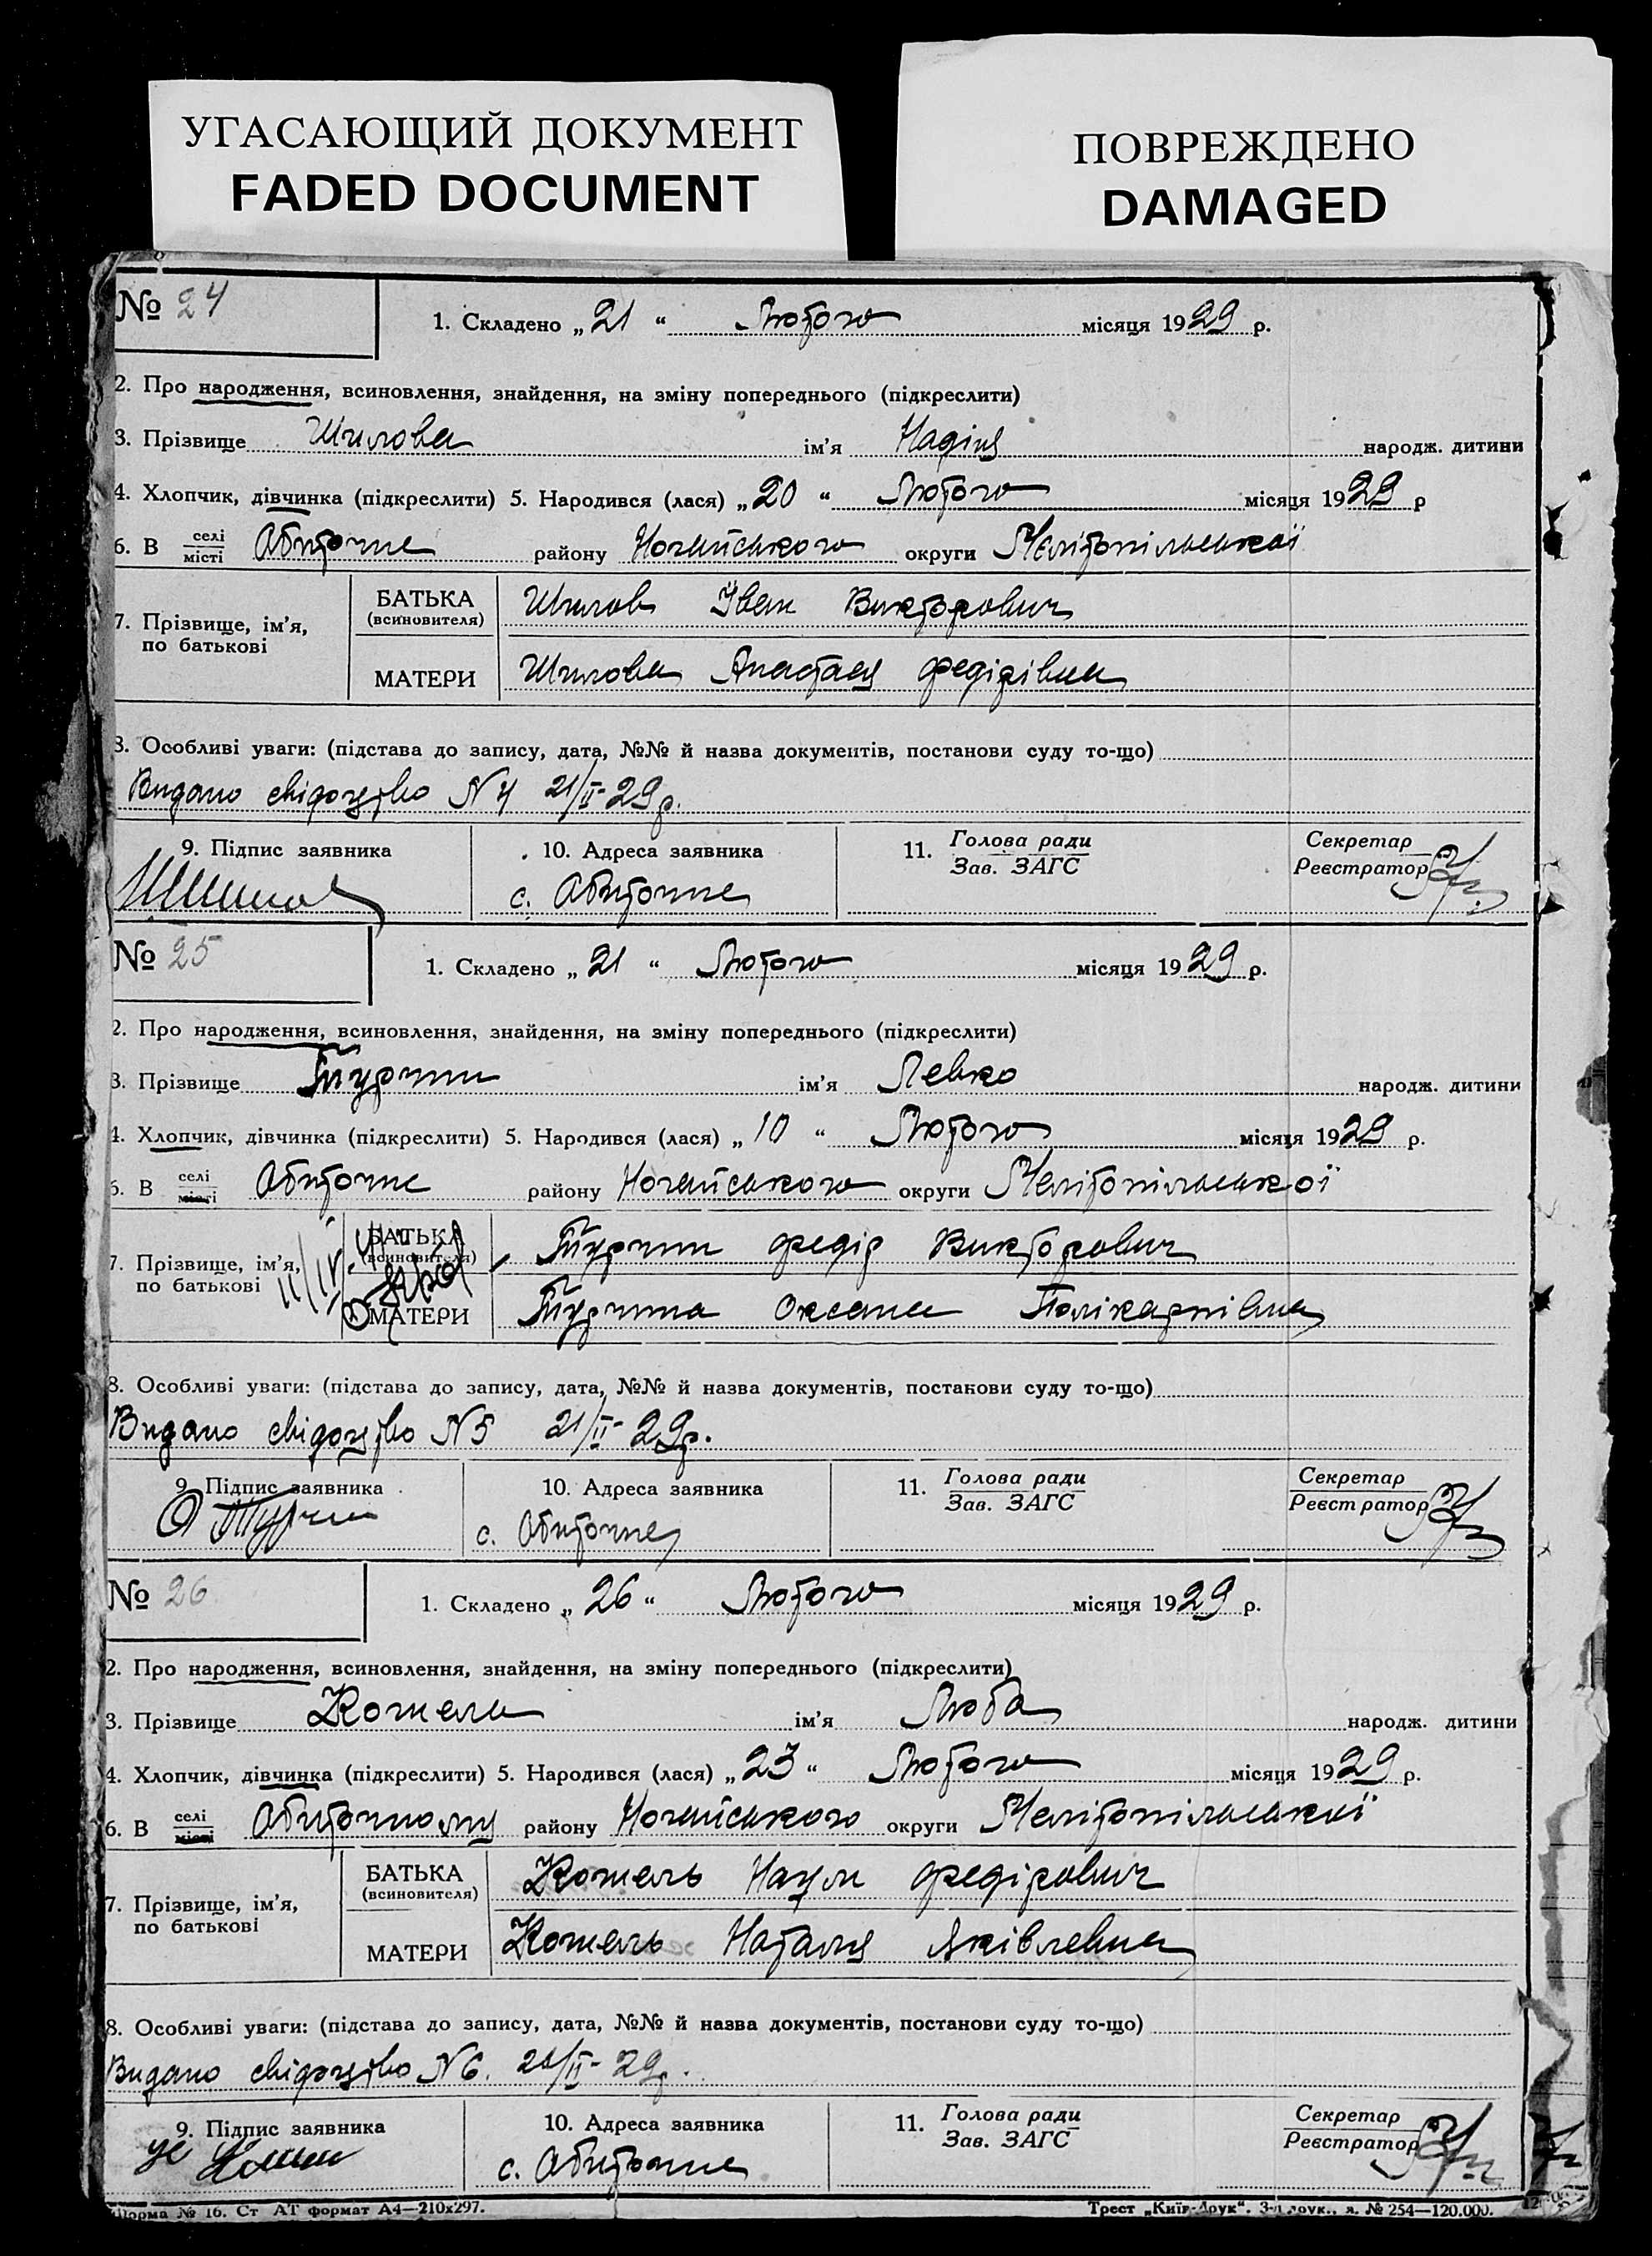 УГАСАЮЩИЙ ДОКУМЕНТ
FADED DOCUMENT
ПОВРЕЖДЕНО
DAMAGED
№ 24
1. Складено „21“ Лютого місяця 1929 р.
2. Про народження, всиновлення, знайдення, на зміну попереднього (підкреслити)
3. Прізвище Шилова ім'я Надія народж. дитини
4. Хлопчик, дівчинка (підкреслити) 5. Народився (лася) „20“ Лютого місяця 1929 р
6. В селі місті Обиточне району Ногайського округи Мелітопільської
7. Прізвище, ім'я, по батькові
БАТЬКА (всиновителя) Шилов Іван Викторович
МАТЕРИ Шилова Анастася Федірівна
8. Особливі уваги: (підстава до запису, дата, №№ й назва документів, постанови суду то-що)
Видано свідоцтво N 4 21/II-29р.
9. Підпис заявника 10. Адреса заявника 11. Голова ради Зав. ЗАГС Секретар Реєстратор
с. Обиточне
№ 25
1. Складено „21“ Лютого місяця 1929 р.
2. Про народження, всиновлення, знайдення, на зміну попереднього (підкреслити)
3. Прізвище Турчин ім'я Левко народж. дитини
4. Хлопчик, дівчинка (підкреслити) 5. Народився (лася) „10“ Лютого місяця 1929 р.
6. В селі місті Обиточне району Ногайського округи Мелітопільської
7. Прізвище, ім'я, по батькові
БАТЬКА (всиновителя) Турчин Федір Викторович
МАТЕРИ Турчина Оксана Полікарпівна
8. Особливі уваги: (підстава до запису, дата, №№ й назва документів, постанови суду то-що)
Видано свідоцтво N 5 21/II-29р.
9. Підпис заявника 10. Адреса заявника 11. Голова ради Зав. ЗАГС Секретар Реєстратор
Ф Турчин с. Обиточне
№ 26
1. Складено „26“ Лютого місяця 1929 р.
2. Про народження, всиновлення, знайдення, на зміну попереднього (підкреслити)
3. Прізвище ім'я Люба народж. дитини
4. Хлопчик, дівчинка (підкреслити) 5. Народився (лася) „23“ Лютого місяця 1929 р.
6. В селі місті Обиточному району Ногайського округи Мелітопільської
7. Прізвище, ім'я, по батькові
БАТЬКА (всиновителя) Наум Федірович
МАТЕРИ Наталя Яківлевна
8. Особливі уваги: (підстава до запису, дата, №№ й назва документів, постанови суду то-що)
Видано свідоцтво N 6. 29р.
9. Підпис заявника 10. Адреса заявника 11. Голова ради Зав. ЗАГС Секретар Реєстратор
с. Обиточне
Форма № 16. Ст АТ формат А4—210х297.
Трест „Київ-Друк“. 3-я друк., з. № 254—120.000.